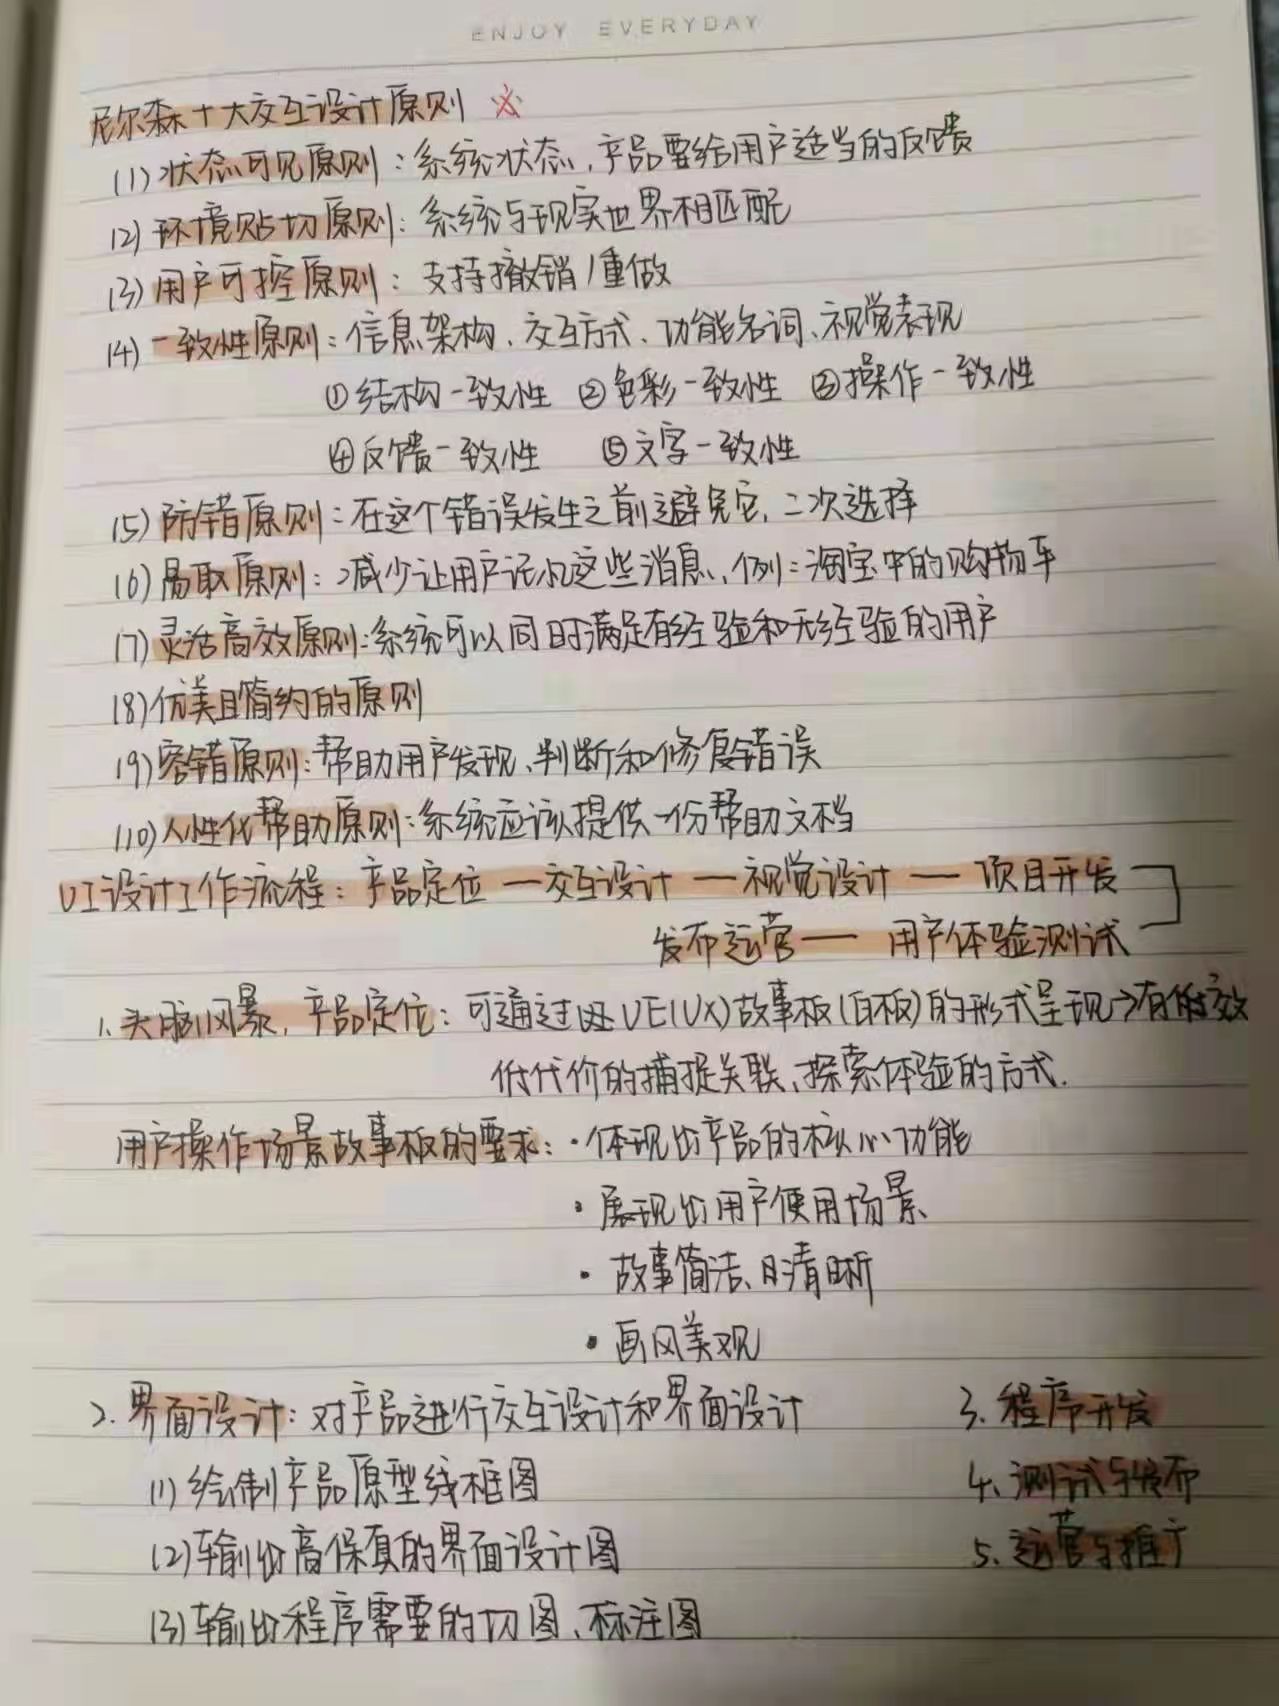 ENJOY EVERYDAY
尼尔森十大交互设计原则
(1)状态可见原则：系统状态，产品要给用户适当的反馈
(2)环境贴切原则：系统与现实世界相匹配
(3)用户可控原则：支持撤销/重做
(4)一致性原则：信息架构、交互方式、功能名词、视觉表现
①结构一致性 ②色彩一致性 ③操作一致性
④反馈一致性 ⑤文字一致性
(5)防错原则：在这个错误发生之前避免它，二次选择
(6)易取原则：减少让用户记忆这些消息，例：淘宝中的购物车
(7)灵活高效原则：系统可以同时满足有经验和无经验的用户
(8)优美且简约的原则
(9)容错原则：帮助用户发现、判断和修复错误
(10)人性化帮助原则：系统应该提供一份帮助文档
UI设计工作流程：产品定位—交互设计—视觉设计—项目开发
发布运营—用户体验测试
1.头脑风暴，产品定位：可通过UE(UX)故事板(白板)的形式呈现→有效
低代价的捕捉关联、探索体验的方式.
用户操作场景故事板的要求：·体现出产品的核心功能
·展现出用户使用场景
·故事简洁、清晰
·画风美观
2.界面设计：对产品进行交互设计和界面设计 3.程序开发
(1)绘制产品原型线框图 4.测试与发布
(2)输出高保真的界面设计图 5.运营与推广
(3)输出程序需要的切图、标注图